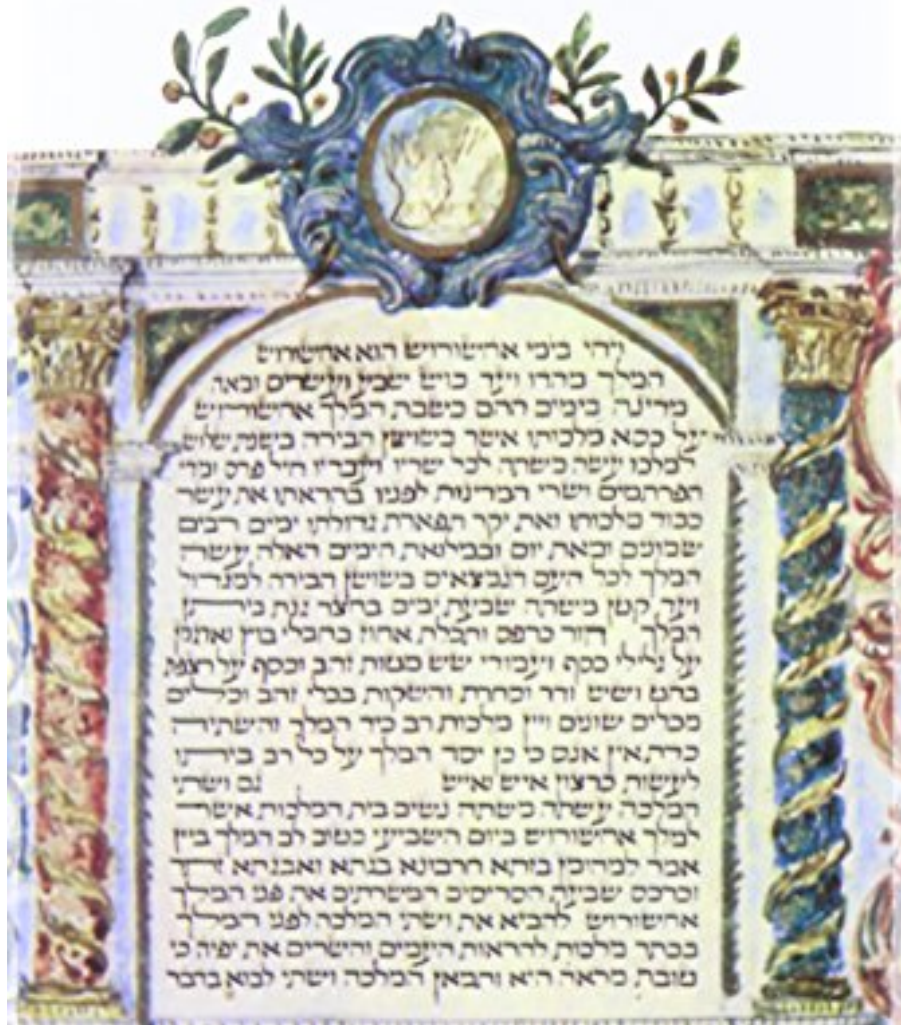 ויהי בימי אחשורוש הוא אחשורוש
המלך מהדו ועד כוש שבע ועשרים ומאה
מדינה בימים ההם כשבת המלך אחשורוש
על כסא מלכותו אשר בשושן הבירה בשנת שלוש
למלכו עשה משתה לכל שריו ועבדיו חיל פרס ומדי
הפרתמים ושרי המדינות לפניו בהראתו את עשר
כבוד מלכותו ואת יקר תפארת גדולתו ימים רבים
שמונים ומאת יום ובמלואת הימים האלה עשה
המלך לכל העם הנמצאים בשושן הבירה למגדול
ועד קטן משתה שבעת ימים בחצר גנת ביתן
המלך חור כרפס ותכלת אחוז בחבלי בוץ וארגמן
על גלילי כסף ועמודי שש מטות זהב וכסף על רצפת
בהט ושש ודר וסחרת והשקות בכלי זהב וכלים
מכלים שונים ויין מלכות רב כיד המלך והשתיה
כדת אין אנס כי כן יסד המלך על כל רב ביתו
לעשות כרצון איש ואיש גם ושתי
המלכה עשתה משתה נשים בית המלכות אשר
למלך אחשורוש ביום השביעי כטוב לב המלך ביין
אמר למהומן בזתא חרבונא בגתא ואבגתא זתר
וכרכס שבעת הסריסים המשרתים את פני המלך
אחשורוש להביא את ושתי המלכה לפני המלך
בכתר מלכות להראות העמים והשרים את יפיה כי
טובת מראה היא ותמאן המלכה ושתי לבוא בדבר